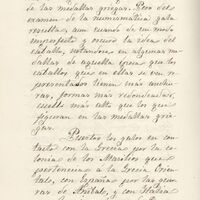 de las medallas griegas. Por del
examen de la numismatica gala
resulta, aun cuando de un modo
imperfecto y oscuro la idea del
caballo, notandose en algunas me-
dallas de aquella época que los
caballos que en ellas se ven re-
presentados tienen más anchu-
ras, formas mas redondeadas,
cuello más alto que los que
figuran en las medallas grie-
gas.
Puestos los galos en con-
tacto con la Grecia por la co-
lonia de los que
pertenecia a la Grecia Orien-
tal, con España por las gue-
rras de Anibal, y con Italia